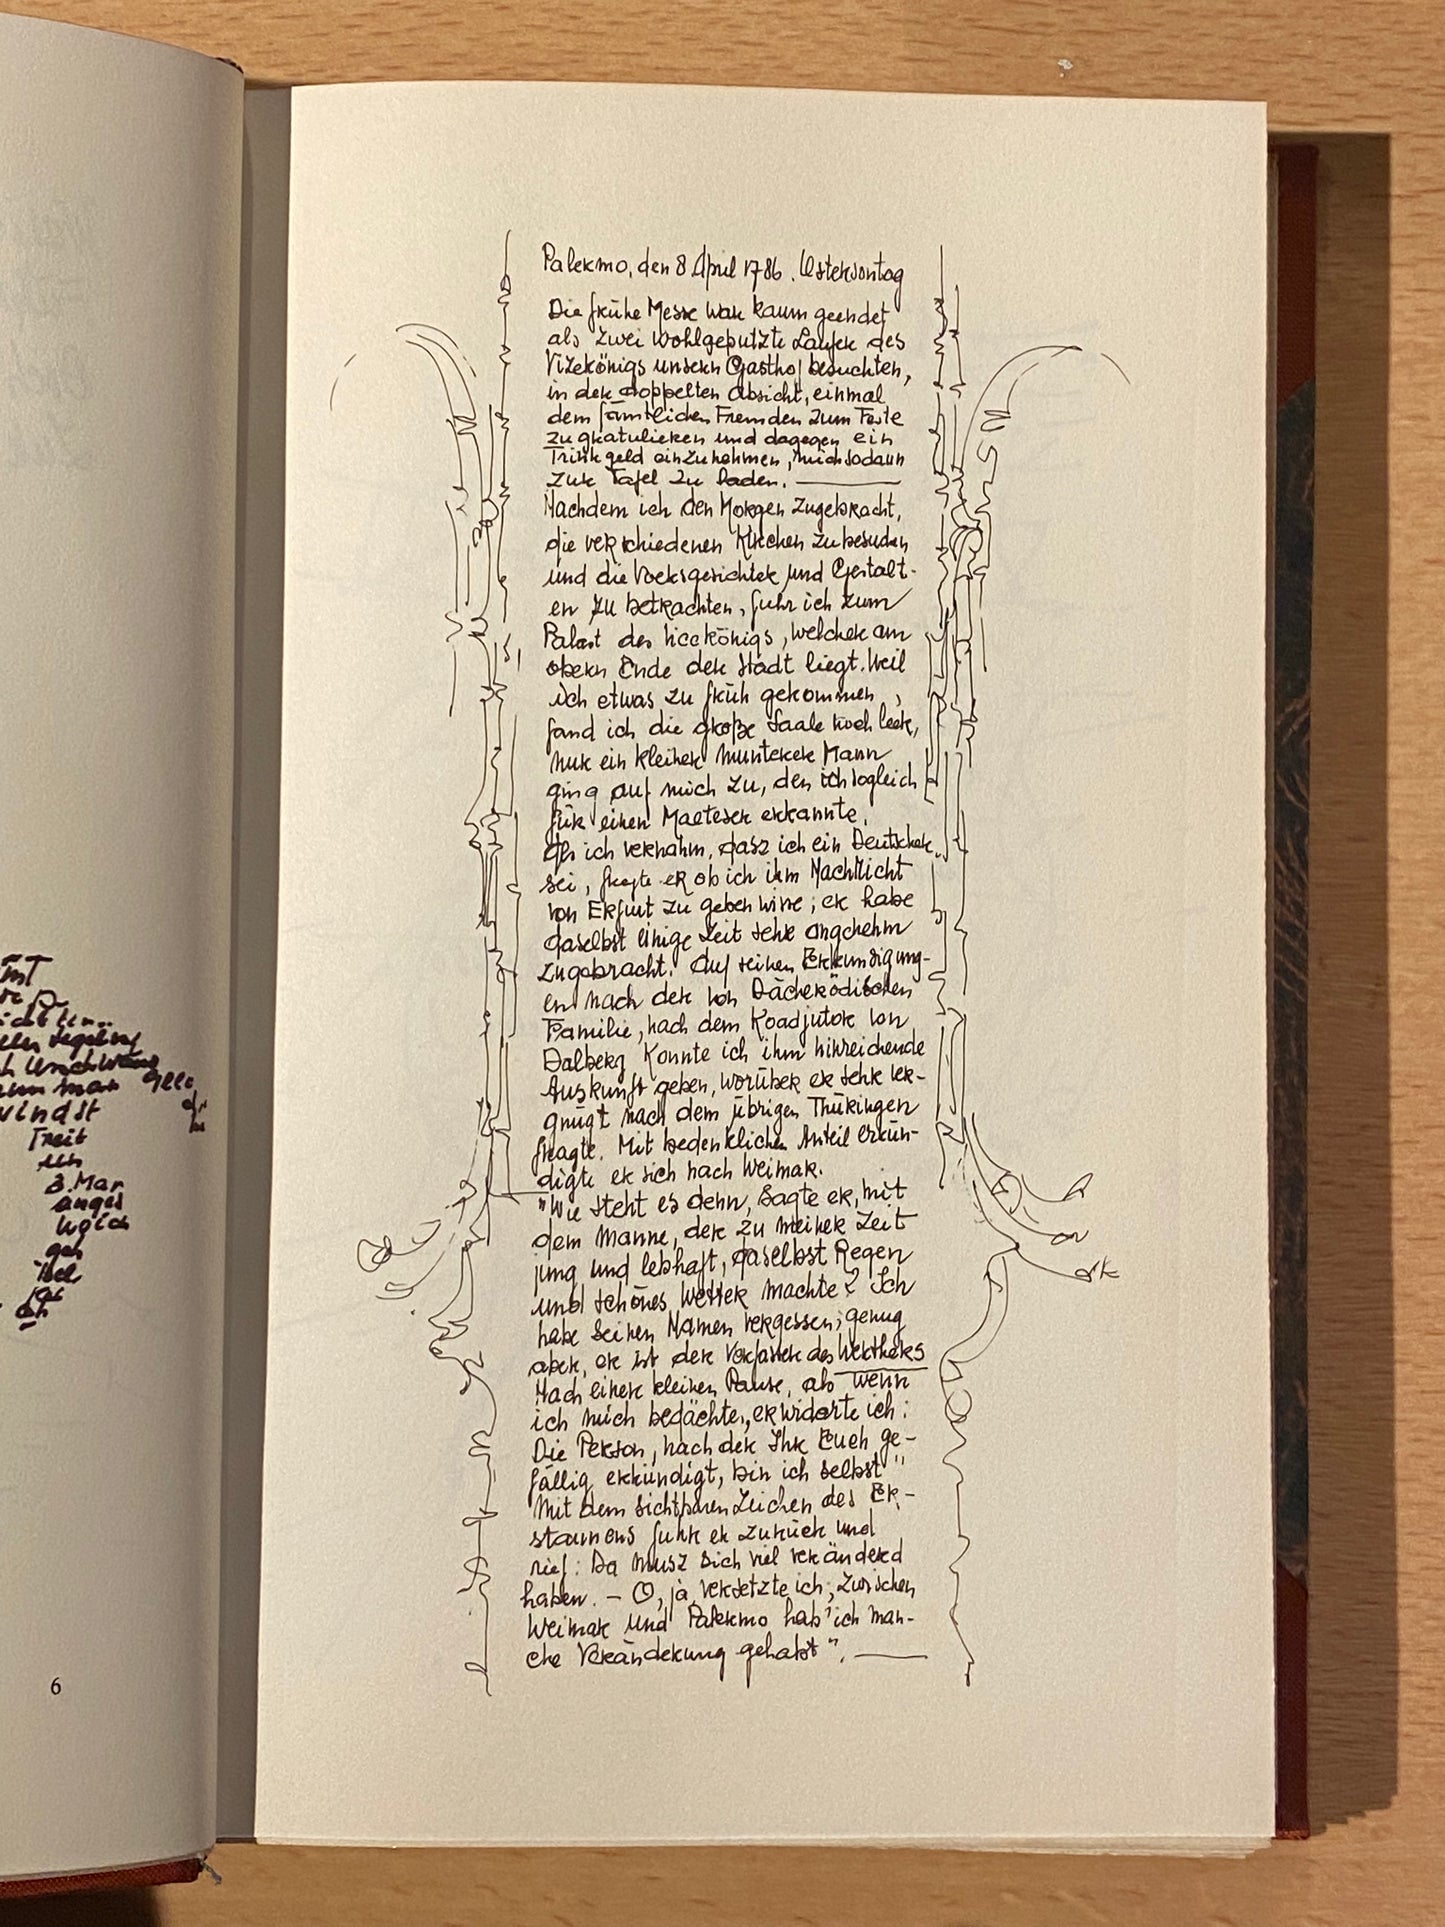 Palermo, den 8 April 1786. Ostersontag
Die frühe Messe war kaum geendet
als zwei wohlgeputzte Laufer des
Vizekönigs unsern Gasthof besuchten,
in der doppelten Absicht, einmal
dem sämtlichen Fremden zum Feste
zu gratulieren und dagegen ein
Trinkgeld einzunehmen, mich sodann
zur Tafel zu laden.
Nachdem ich den Morgen zugebracht,
die verschiedenen Kirchen zu besuchen
und die Volksgesichter und Gestalt-
en zu betrachten, fuhr ich zum
Palast des Vicekönigs, welcher am
obern Ende der Stadt liegt. Weil
ich etwas zu früh gekommen,
fand ich die große Saale noch leer,
nur ein kleiner munterer Mann
ging auf mich zu, den ich sogleich
für einen Malteser erkannte.
Als ich vernahm, dasz ich ein Deutscher
sei, fragte er ob ich ihm Nachricht
von Erfurt zu geben wisse; er habe
daselbst einige Zeit sehr angenehm
zugebracht. Auf seinen Erkundigung-
en nach der von Dächerödischen
Familie, nach dem Koadjutor von
Dalberg konnte ich ihm hinreichende
Auskunft geben, worüber er sehr ver-
gnügt nach dem übrigen Thüringen
fragte. Mit bedenklichen Anteil erkun-
digte er sich nach Weimar.
"Wie steht es denn, sagte er, mit
dem Manne, der zu meiner Zeit
jung und lebhaft, daselbst Regen
und schönes Wetter machte? Ich
habe seinen Namen vergessen; genug
aber, er ist der Verfasser des Werthers
Nach einer kleinen Pause, als wenn
ich mich bedächte, erwiderte ich:
Die Person, nach der Ihr Euch ge-
fällig erkündigt, bin ich selbst"
Mit dem sichtbaren Zeichen des Er-
staunens fuhr er zurück und
rief: Da musz sich viel veränderd
haben. – O, ja, versetzte ich; zwischen
Weimar und Palermo hab' ich man-
che Veränderung gehabt".
Treit
3. Mar
6